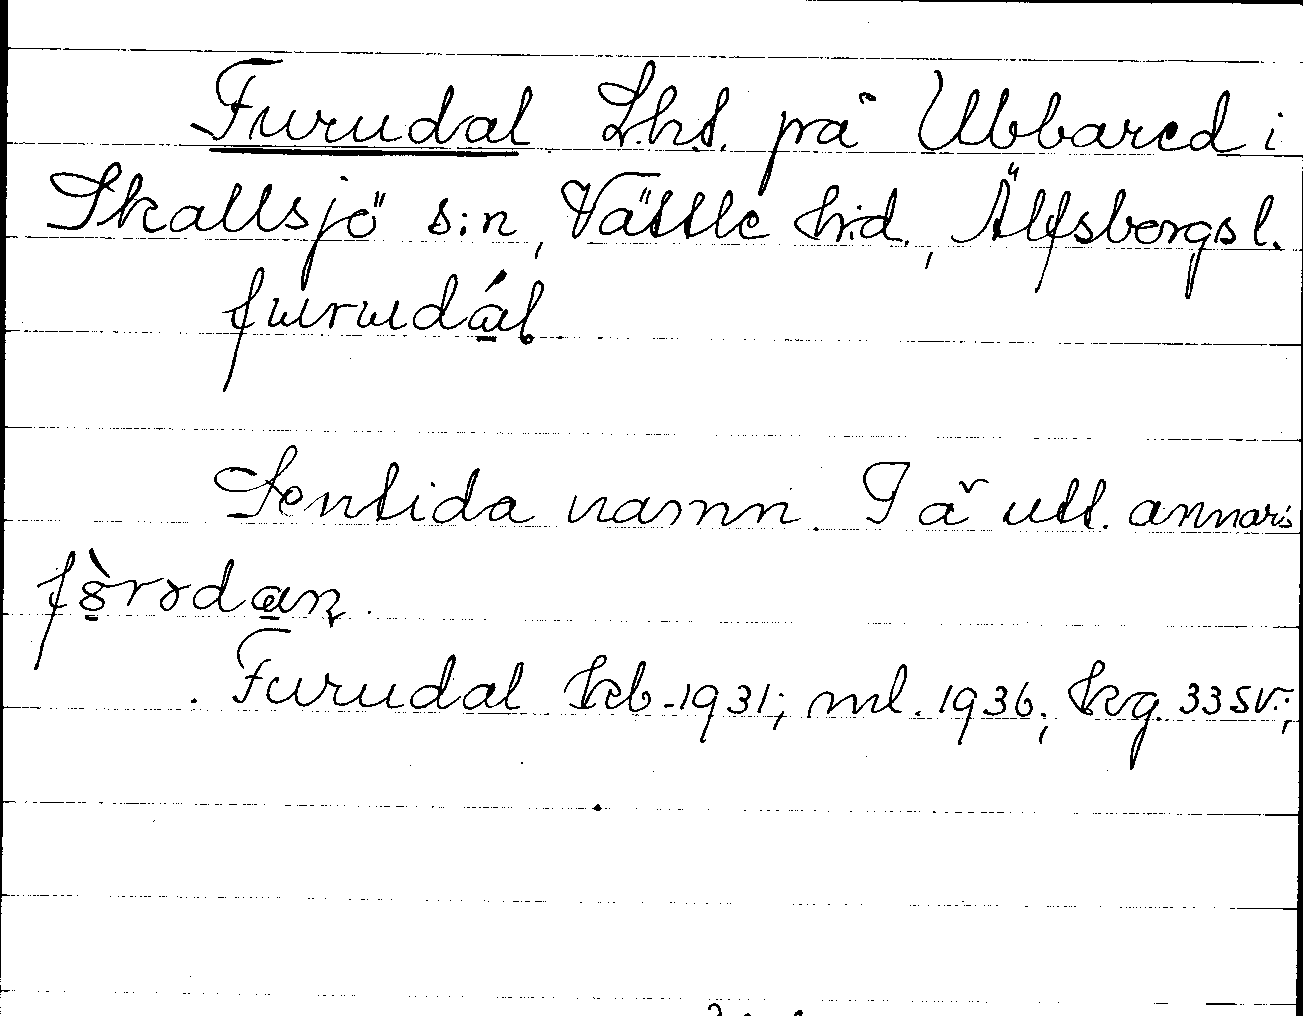 Furudal Lhs. på Ubbared i
Skallsjö s:n, Vättle hd., Älfsborgs l.
furudál.
Sentida namn. I ä utt. annars
Furudal kb. 1931; ml. 1936; kg. 33 SV.;